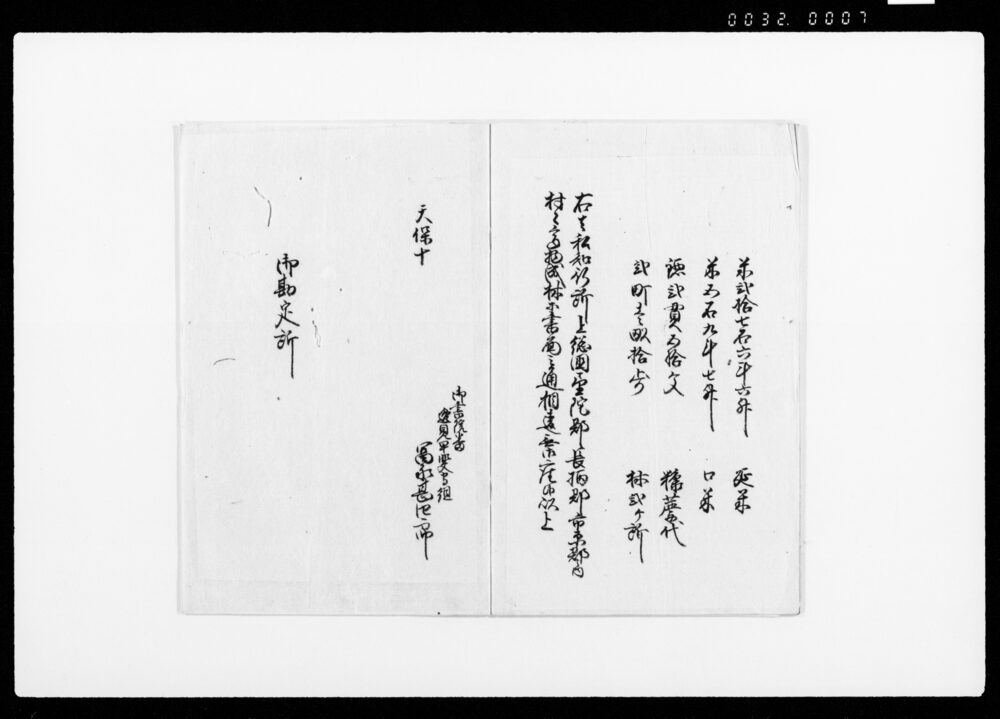 0032. 0007
米弐拾七石六斗六升 延米
米五石九斗七升 口米
鐚弐貫五拾文 糠藁代
弐町壱畝拾歩 林弐ヶ所
右者私知行所上総国望陀郡長柄郡市原郡之内
村々高物成林等書面之通相違無御座候以上
天保十
御書院番
逸見甲斐守組
冨永甚四郎
御勘定所